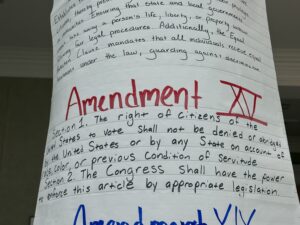 hereby prohi
Ensuring that state and local governments
not take away a person's life, liberty, or property
fair legal procedures. Additionally, the Equal
Clause mandates that all individuals receive equal
under the law, guarding against discrimination
Amendment XV
Section 1. The right of citizens of the
States to vote shall not be denied or abridged
by the United States or by any State on account of
race, color, or previous condition of servitude
Section 2. The Congress shall have the power
to enforce this article by appropriate legislation.
Amendment XIX